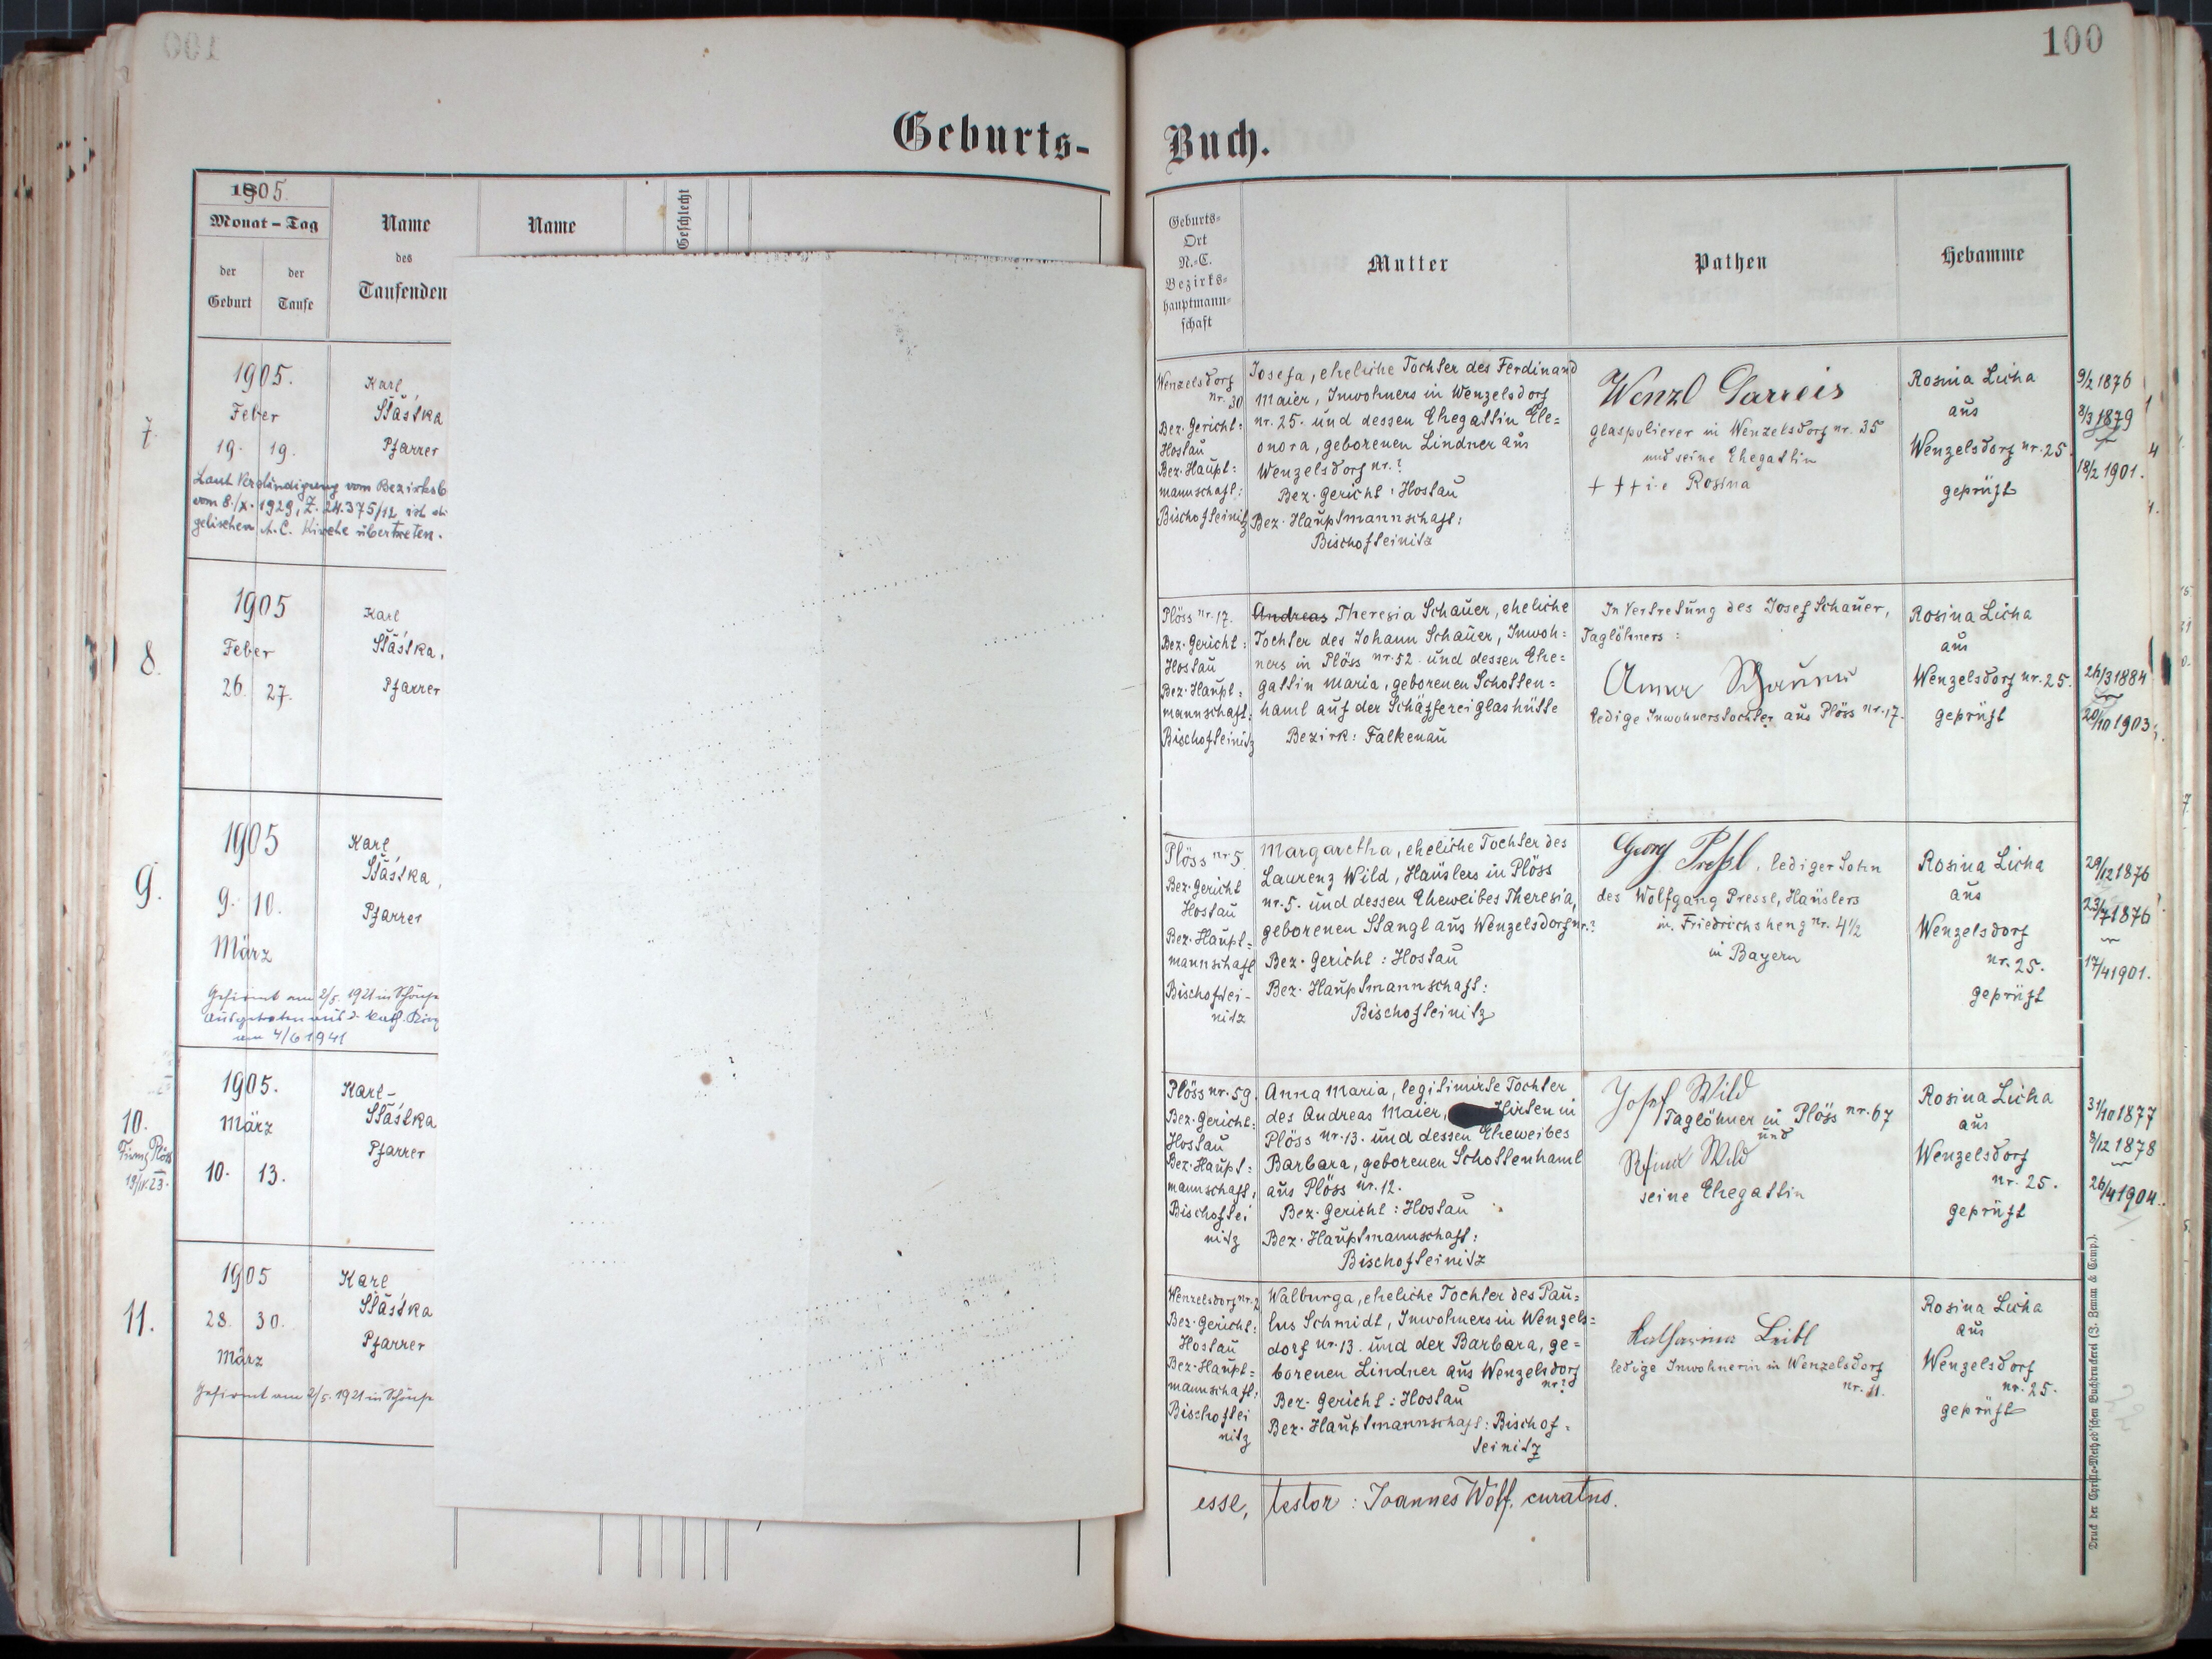 100
Geburts-
Buch.
1905.
Monat – Tag
der Geburt
der Taufe
Name
des
Taufenden
Name
Geschlecht
Geburts-
Ort
N.-C.
Bezirks-
hauptmann-
schaft
Mutter
Pathen
Hebamme
7.
1905.
Feber
19. 19.
Karl
Šťástka
Pfarrer
Laut Verständigung vom Bezirksb
vom 8./X. 1929, Z. 24.375/12 ist
gelischen A. C. Kirche übertreten.
Wenzelsdorf
nr. 30
Bez. Gericht:
Hostau
Bez. Haupt=
mannschaft:
Bischofteinitz
Josefa, eheliche Tochter des Ferdinand
Maier, Inwohners in Wenzelsdorf
nr. 25. und dessen Ehegattin Ele=
onora, geborenen Lindner aus
Wenzelsdorf nr. ?
Bez. Gericht: Hostau
Bez. Hauptmannschaft:
Bischofteinitz
Wenzl Parreis
Glaspolierer in Wenzelsdorf nr. 35
und seine Ehegattin
+ + + i. e Rosina
Rosina Licha
aus
Wenzelsdorf nr. 25
geprüft
9/2 1876
8/3 1879
18/2 1901.
8.
1905
Feber
26. 27.
Karl
Šťástka,
Pfarrer
Plöss nr. 17.
Bez. Gericht:
Hostau
Bez. Haupt=
mannschaft:
Bischofteinitz
Andreas Theresia Schauer, eheliche
Tochter des Johann Schauer, Inwoh=
ners in Plöss nr. 52. und dessen Ehe=
gattin Maria, geborenen Schotten=
haml auf der Schäffereiglashütte
Bezirk: Falkenau
In Vertretung des Josef Schauer,
Taglöhners:
Anna Schauer
ledige Inwohnerstochter aus Plöss nr. 17.
Rosina Licha
aus
Wenzelsdorf nr. 25.
geprüft
26/3 1884
20/10 1903
9.
1905
9. 10.
März
Karl
Šťástka,
Pfarrer
Gefirmt am 2/5. 1921 in
ausgetreten aus d. kath.
am 4/6 1941
Plöss nr. 5
Bez. Gericht
Hostau
Bez. Haupt=
mannschaft
Bischoftei-
nitz
Margaretha, eheliche Tochter des
Laurenz Wild, Häuslers in Plöss
nr. 5. und dessen Eheweibes Theresia,
geborenen Stangl aus Wenzelsdorf nr. ?
Bez. Gericht: Hostau
Bez. Hauptmannschaft:
Bischofteinitz
Georg Preßl, lediger Sohn
des Wolfgang Pressl, Häuslers
in Friedrichsheng nr. 4½
in Bayern
Rosina Licha
aus
Wenzelsdorf
nr. 25.
geprüft
29/12 1876
23/7 1876
17/4 1901.
10.
Plöss
19/IV. 23.
1905.
März
10. 13.
Karl-
Šťástka
Pfarrer
Plöss nr. 59.
Bez. Gericht:
Hostau
Bez. Haupt:
mannschaft,
Bischoftei
nitz
Anna Maria, legitimirte Tochter
des Andreas Maier, Hirten in
Plöss nr. 13. und dessen Eheweibes
Barbara, geborenen Schottenhaml
aus Plöss nr. 12.
Bez. Gericht: Hostau
Bez. Hauptmannschaft:
Bischofteinitz
Josef Wild
Taglöhner in Plöss nr. 67
und
Wild
seine Ehegattin
Rosina Licha
aus
Wenzelsdorf
nr. 25.
geprüft
31/10 1877
8/12 1878
26/4 1904.
11.
1905
28. 30.
März
Karl
Šťástka
Pfarrer
Gefirmt am 2/5. 1921 in
Wenzelsdorf nr. 2
Bez. Gericht:
Hostau
Bez. Haupt=
mannschaft:
Bischoftei
nitz
Walburga, eheliche Tochter des Pau=
lus Schmidt, Inwohners in Wenzels=
dorf nr. 13. und der Barbara, ge=
borenen Lindner aus Wenzelsdorf
nr. ?
Bez. Gericht: Hostau
Bez. Hauptmannschaft: Bischof=
teinitz
Katharina Leibl
ledige Inwohnerin in Wenzelsdorf
nr. 11.
Rosina Licha
aus
Wenzelsdorf
nr. 25.
geprüft
esse, testor: Joannes Wolf, curatus.
Druck der Chrysle-Method'schen Buchdruckerei (J. Zeman & Comp.).